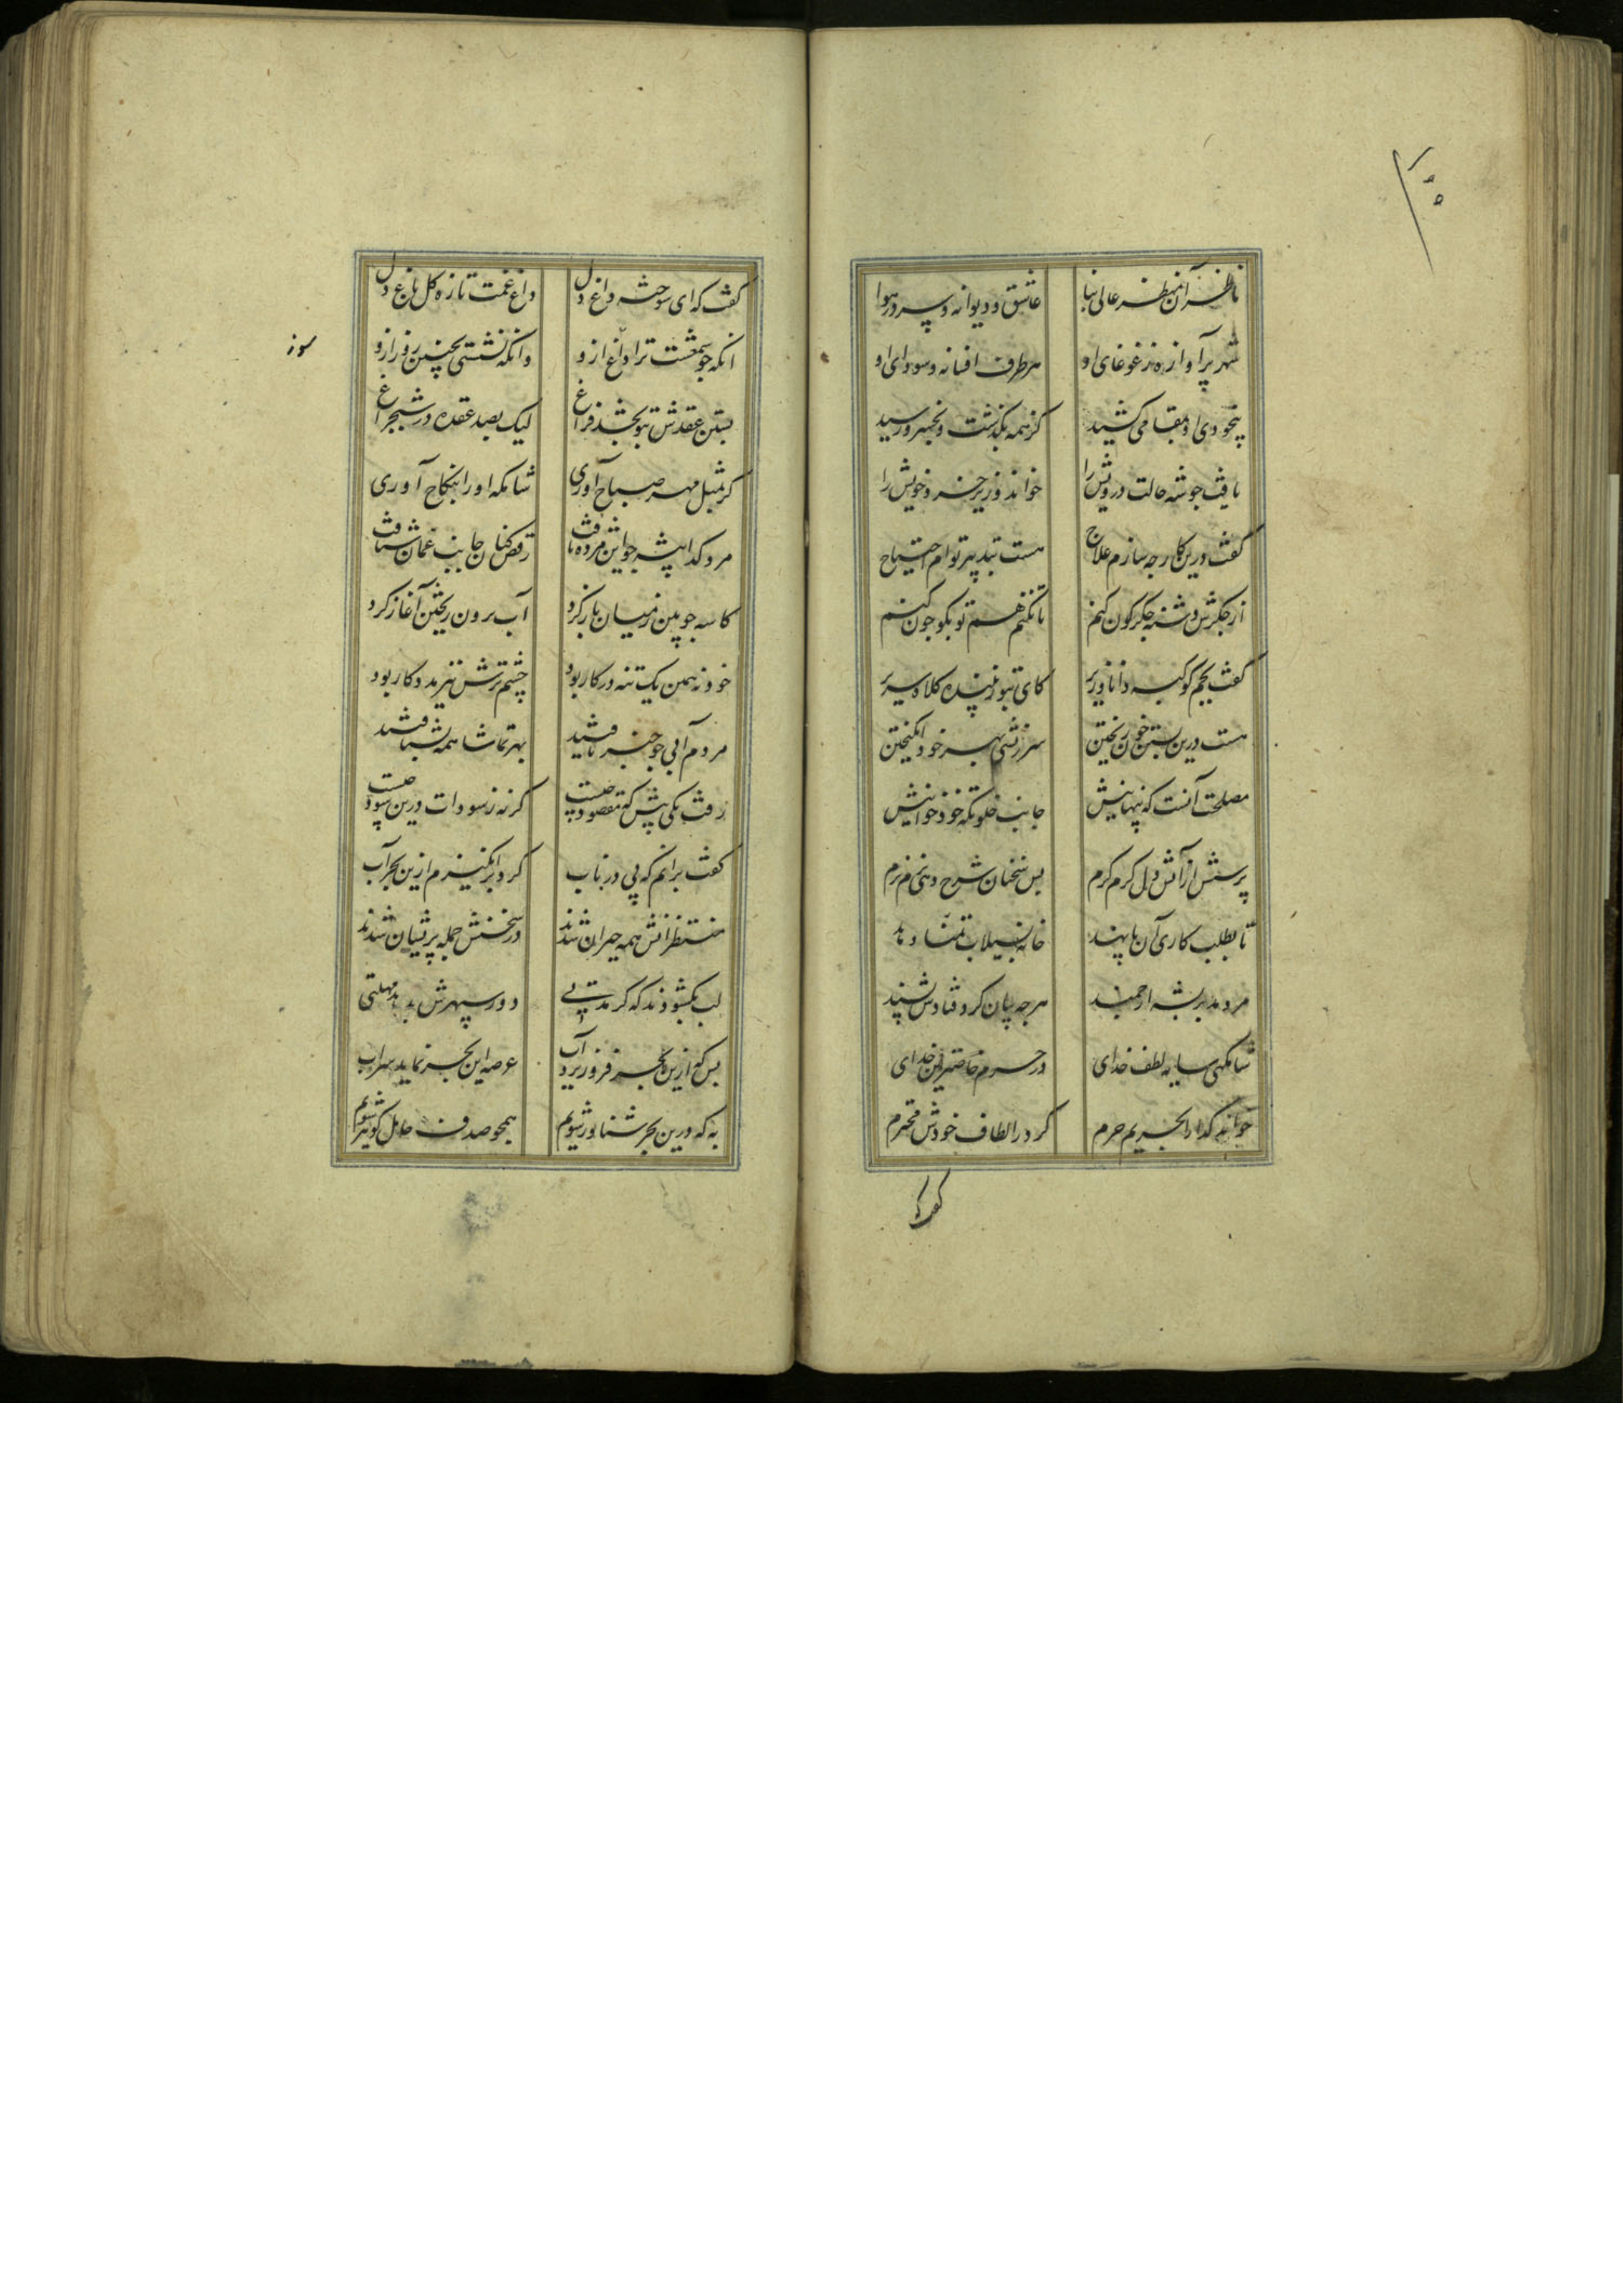 ۱۵۵
ناظر آن منظر عالی بنا عاشق و دیوانه و سر در هوا
شهر پر آوازه ز غوغای او هر طرف افسانه و سودای او
بیخودی او بمقامی کشید کز همه بگذشت و بخسرو رسید
یافت جو شه حالت درویش را خواند وزیر خرد خویش را
گفت درین کار جه سازم علاج هست بتدبیر توام احتیاج
از جگرش دشنه جگرگون کنم یا نکنم هم تو بگو جون کنم
گفت بجم کوکبه دانا وزیر کای بتو زیبنده کلاه و سریر
هست درین بستن خون ریختن سرزنشی بهر خود انگیختن
مصلحت آنست که پنهانیش جانب خلوتگه خود خوانیش
پرسش از آتش دل گرم گرم بس سخنان شرح دهی نرم نرم
تا بطلب کاری آن ناپسند خانه بسیلاب تمنا دهد
مرد مدبر بشه ارجمند هرجه بیان کرد فتادش پسند
شامگهی سایه لطف خدای در حرم خاص
خواند گدا را بحریم حرم کرد در الطاف خودش محترم
گفت که
گفت که ای سوخته داغ دل داغ غمت تازه گل باغ دل
انکه جو شمعست ترا داغ ازو وانکه نشستی بچنین روز ازو
سوز
بستن عقدش بتو بخشد فراغ لیک بصد عقده در شبچراغ
گر بمثل مهر صباح آوری شامگه او را بنکاح آوری
مرد گدا پیشه جو این مژده یافت رقص کنان جانب عمان شتافت
کاسه جوبین ز میان باز کرد آب برون ریختن آغاز کرد
خود نه همین یک تنه در کار بود چشم ترش نیز مددکار بود
مردم آبی جو خبر یافتند بهر تماشا همه بشتافتند
رفت یکی پیش که مقصود چیست گر نه ز سودات درین سود چیست
گفت برانم که پی در ناب گرد برانگیزم ازین بحر آب
منتظرانش همه حیران شدند در سخنش جمله پریشان شدند
لب بگشودند که گر مدتی دور سپهرش بدهد مهلتی
بس که ازین بحر فرو ریزد آب عرصه این بحر نماید سراب
به که درین بحر شناور شویم همجو صدف حامل گوهر شویم